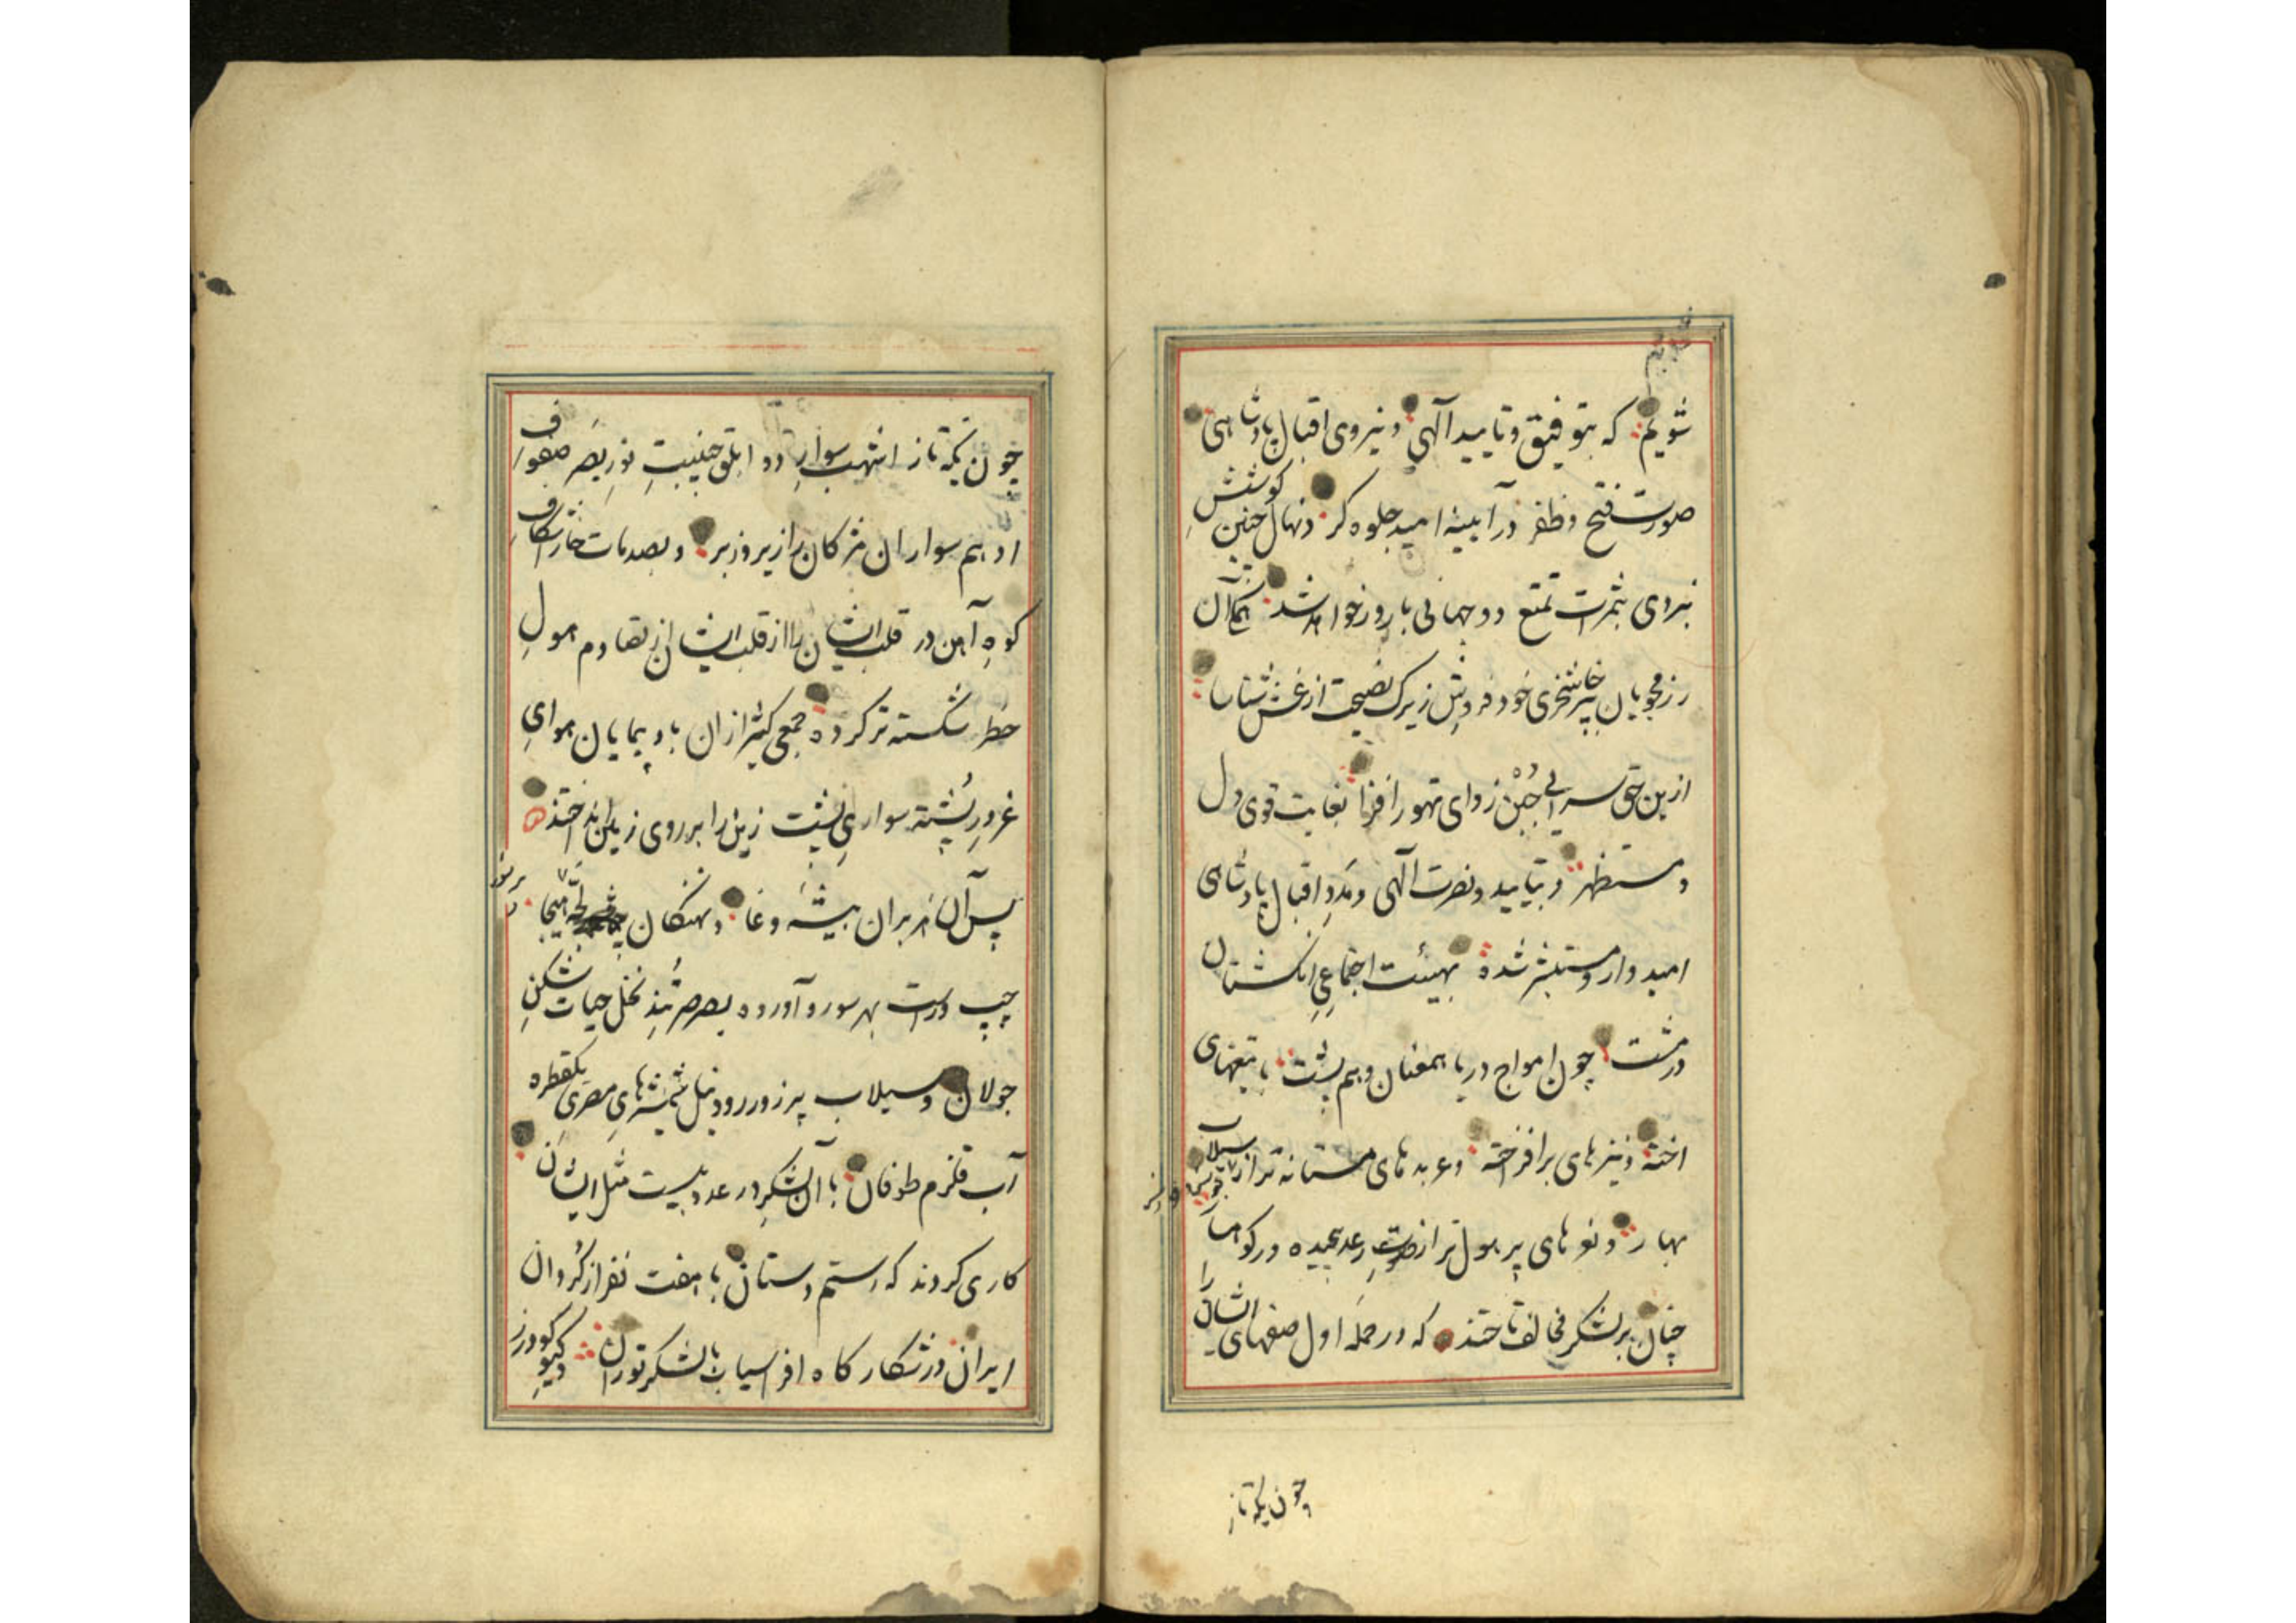 شویم که بتوفیق و تایید آلهی و نیروی اقبال پادشاهی
صورت فتح و ظفر در آیینهٔ امید جلوه کر و نهال کوشش چنین
نبردی بثمرات تمتع دو جهانی بارور خواهد شد همکنان
رزمجویان خود فروش زیرک نصیحت از غش شناسا
ازین زدای تهور افزا بغایت قوی دل
و مستظهر و بتایید و نصرت آلهی و مدد اقبال پادشاهی
امیدوار و مستبشر شده بهیئت اجتماعی انکشتان
در مشت چون امواج دریا همعنان و هم پشت با تیغهای
اخته و نیزهای برافرخته و عربدهای مستانه تر از سیلاب
بهار و نعوهای پر هول تر از صوت رعد پیچیده در کوهسار
چنان بر لشکر مخالف تاختند که در حملهٔ اول صفهای ایشانرا
چون یکه تاز
چون یکه تاز اشهب سوار دو ابلق جنیبت نور بصر صفوف
ادهم سواران مژکان را زیر و زبر و بصدمات خارا شکاف
کوه آهن در قلب ایشان را از قلب ایشان از تصادم هول
خطر شکسته تر کرده جمعی کثیر از ان باد پیمایان هوای
غرور پشته سواری پشت زین را بر روی زمین انداختند
پس آن هزبران بیشهٔ وغا و نهنکان لجّهٔ هیجا
چپ و راست بهر سو رو آورده بصرصر تند نخل حیات شکن
جولان و سیلاب پر زور رود نیل شمشیرهای مصری یکقطره
آب قلزم طوفان با آن لشکر در عدد بیست مثل ایشان
کاری کردند که رستم دستان با هفت نفر از کردان
ایران در شکار کاه افراسیاب با لشکر توران و کیو کودرز